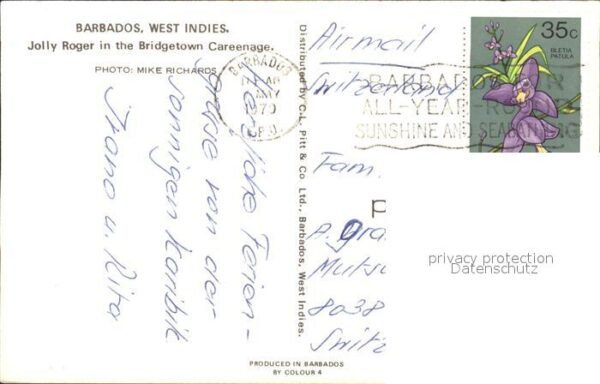 BARBADOS, WEST INDIES.
Jolly Roger in the Bridgetown Careenage.
PHOTO: MIKE RICHARDS
Herzliche Ferien-
grüsse von der
sonnigen Karibik
u. Rita
Distributed by C.L. Pitt & Co Ltd., Barbados, West Indies.
PRODUCED IN BARBADOS
BY COLOUR 4
BARBADOS
G.P.O.
ALL-YEAR-
SUNSHINE AND
35c
BLETIA
PATULA
Airmail
Switzerland
Fam.
P
A.
8038
Switz
privacy protection
Datenschutz